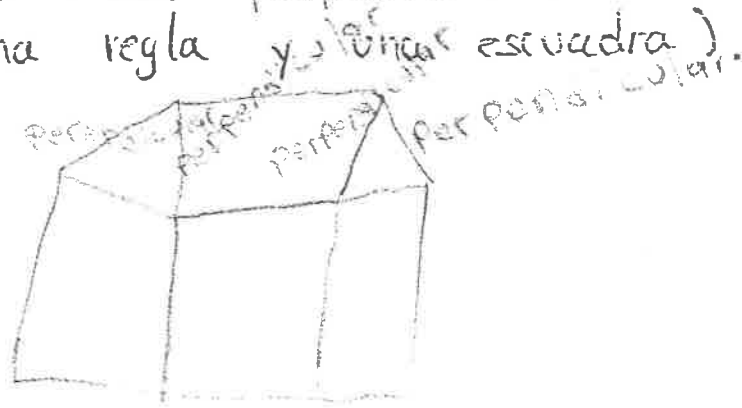 na regla y una escuadra).
perpendicular
perpendicular
perpendicular
perpendicular.